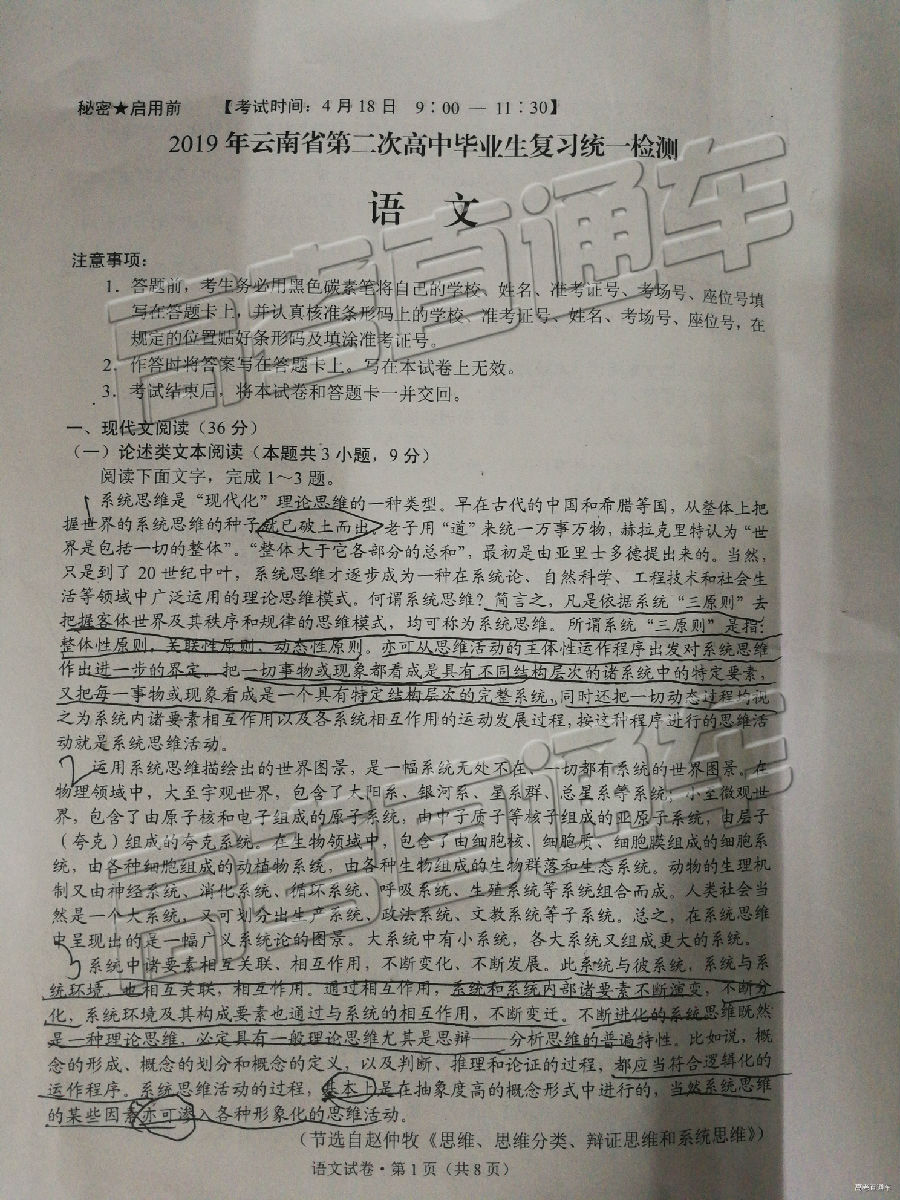 秘密★启用前 【考试时间：4月18日 9：00 — 11：30】
2019年云南省第二次高中毕业生复习统一检测
语 文
注意事项：
1．答题前，考生务必用黑色碳素笔将自己的学校、姓名、准考证号、考场号、座位号填
写在答题卡上，并认真核准条形码上的学校、准考证号、姓名、考场号、座位号，在
规定的位置贴好条形码及填涂准考证号。
2．作答时将答案写在答题卡上。写在本试卷上无效。
3．考试结束后，将本试卷和答题卡一并交回。
一、现代文阅读（36分）
（一）论述类文本阅读（本题共3小题，9分）
阅读下面文字，完成1～3题。
系统思维是“现代化”理论思维的一种类型。早在古代的中国和希腊等国，从整体上把
握世界的系统思维的种子就已破土而出。老子用“道”来统一万事万物，赫拉克里特认为“世
界是包括一切的整体”。“整体大于它各部分的总和”，最初是由亚里士多德提出来的。当然，
只是到了20世纪中叶，系统思维才逐步成为一种在系统论、自然科学、工程技术和社会生
活等领域中广泛运用的理论思维模式。何谓系统思维？简言之，凡是依据系统“三原则”去
把握客体世界及其秩序和规律的思维模式，均可称为系统思维。所谓系统“三原则”是指：
整体性原则、关联性原则、动态性原则。亦可从思维活动的主体性运作程序出发对系统思维
作出进一步的界定。把一切事物或现象都看成是具有不同结构层次的诸系统中的特定要素，
又把每一事物或现象看成是一个具有特定结构层次的完整系统，同时还把一切动态过程均视
之为系统内诸要素相互作用以及各系统相互作用的运动发展过程，按这种程序进行的思维活
动就是系统思维活动。
运用系统思维描绘出的世界图景，是一幅系统无处不在、一切都有系统的世界图景。在
物理领域中，大至宇观世界，包含了大阳系、银河系、星系群、总星系等系统；小至微观世
界，包含了由原子核和电子组成的原子系统，由中子质子等核子组成的亚原子系统，由层子
（夸克）组成的夸克系统。在生物领域中，包含了由细胞核、细胞质、细胞膜组成的细胞系
统，由各种细胞组成的动植物系统，由各种生物组成的生物群落和生态系统。动物的生理机
制又由神经系统、消化系统、循环系统、呼吸系统、生殖系统等系统组合而成。人类社会当
然是一个大系统，又可划分出生产系统、政法系统、文教系统等子系统。总之，在系统思维
中呈现出的是一幅广义系统论的图景。大系统中有小系统，各大系统又组成更大的系统。
系统中诸要素相互关联、相互作用，不断变化、不断发展。此系统与彼系统，系统与系
统环境，也相互关联，相互作用。通过相互作用，系统和系统内部诸要素不断演变，不断分
化，系统环境及其构成要素也通过与系统的相互作用，不断变迁。不断进化的系统思维既然
是一种理论思维，必定具有一般理论思维尤其是思辩——分析思维的普遍特性。比如说，概
念的形成、概念的划分和概念的定义，以及判断、推理和论证的过程，都应当符合逻辑化的
运作程序。系统思维活动的过程，基本上是在抽象度高的概念形式中进行的，当然系统思维
的某些因素亦可渗入各种形象化的思维活动。
（节选自赵仲牧《思维、思维分类、辩证思维和系统思维》）
语文试卷·第1页（共8页）
高考直通车
高考直通车
高考直通车